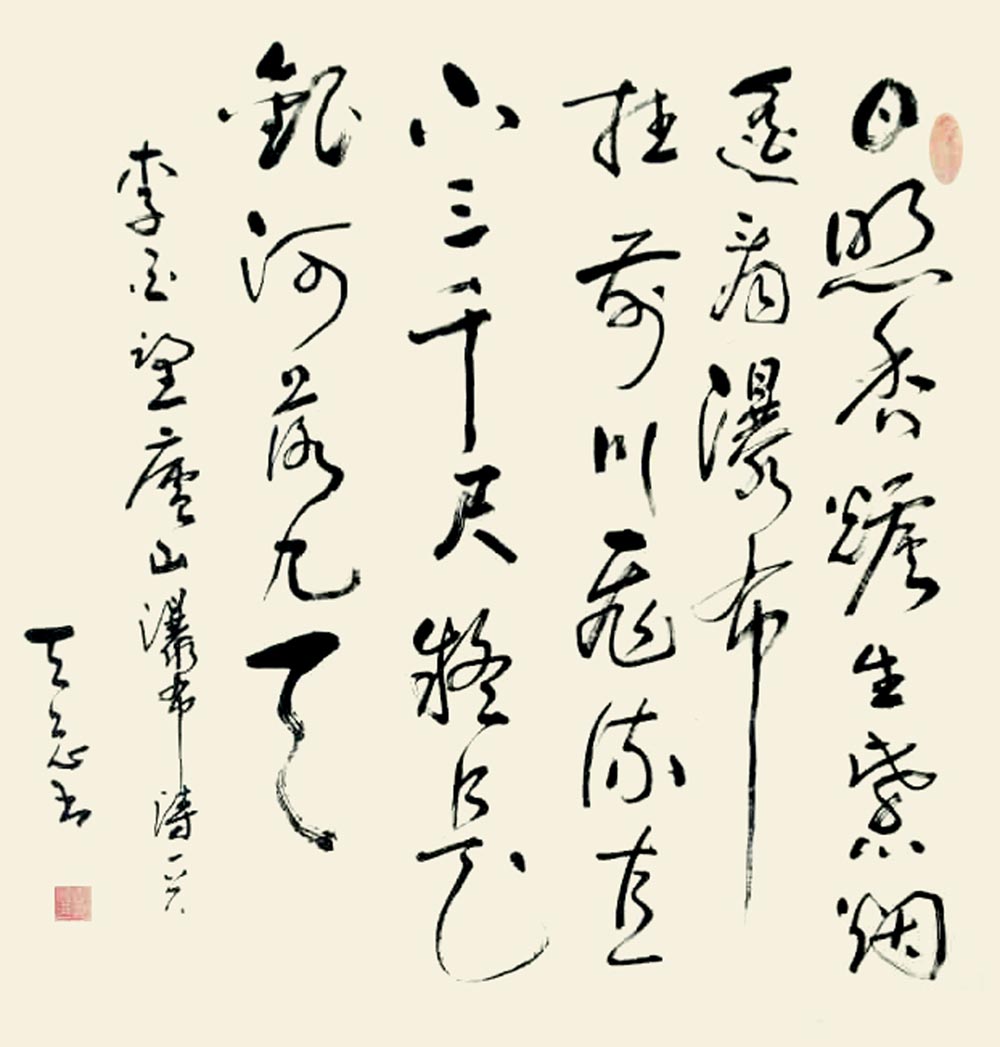 日照香爐生紫烟
遥看瀑布
挂前川飛流直
下三千尺疑是
銀河落九天
李白望廬山瀑布詩一首
书